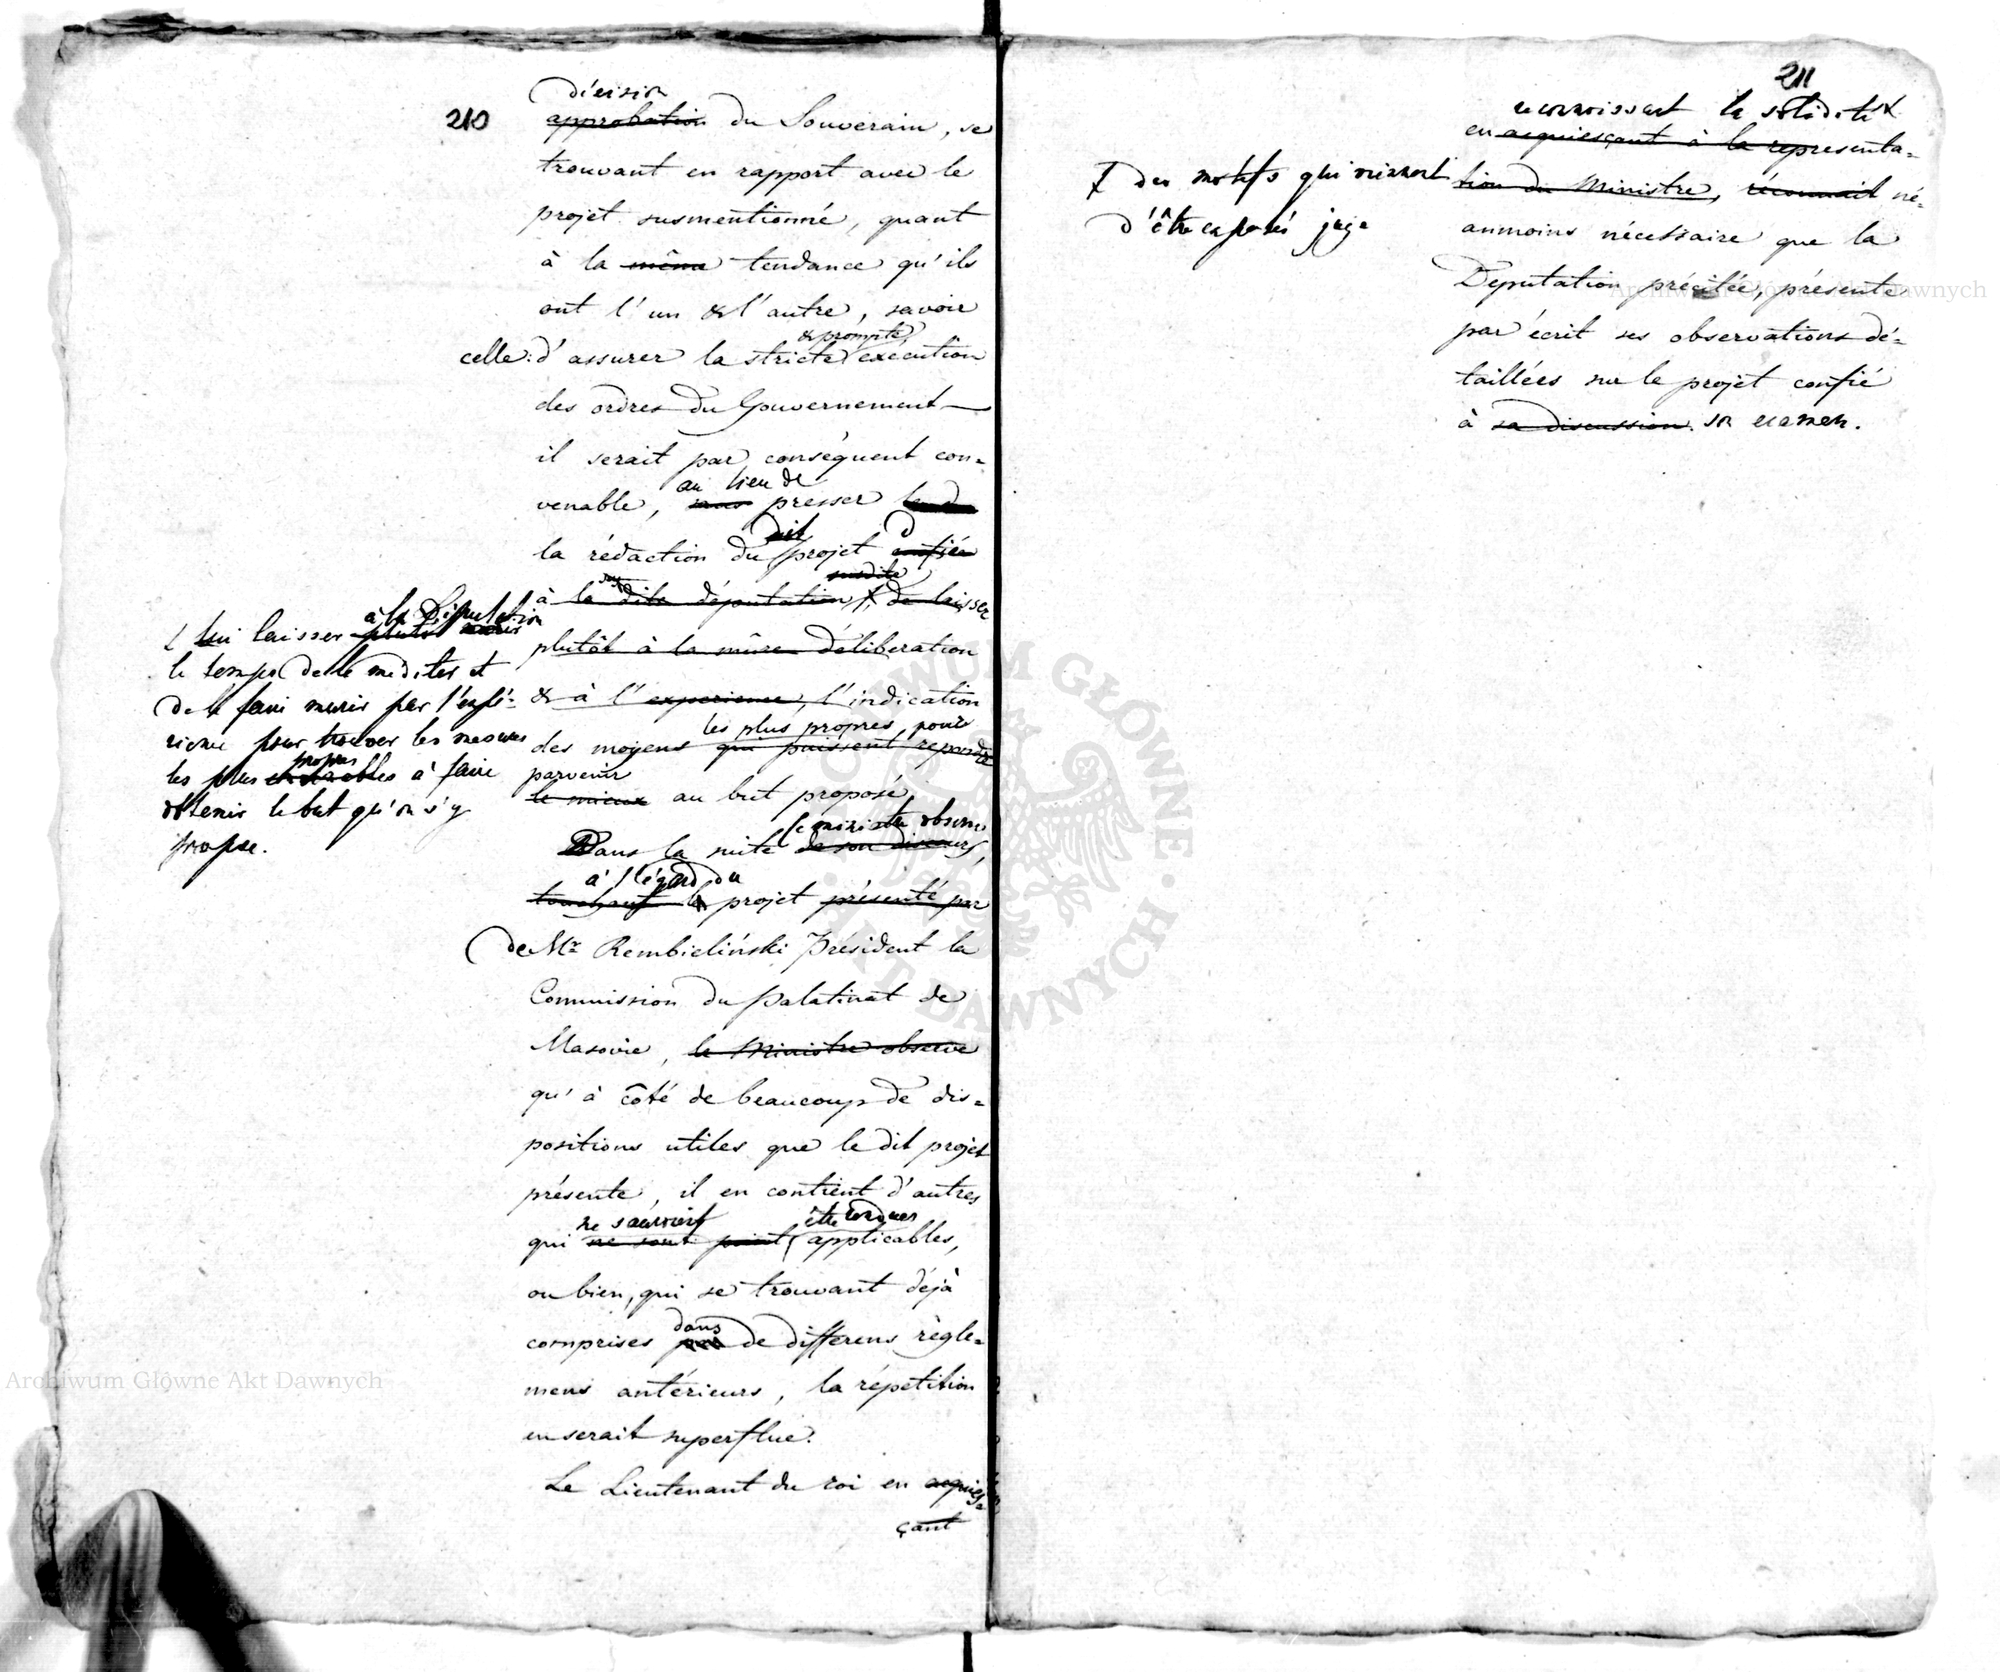 210
décision
approbation du Souverain, se
trouvant en rapport avec le
projet susmentionné, quant
à la même tendance qu'ils
ont l'un & l'autre, savoir
& prompte
celle: d'assurer la stricte exécution
des ordres du Gouvernement —
il serait par conséquent con=
au lieu de
venable, sans presser
dit
la rédaction du projet confié
susdite
à la dite députation, de laisser
plutôt à la mûre déliberation
& à l'experience, l'indication
les plus propres, pour
des moyens qui puissent repondre
parvenir
le mieux au but proposé,
le ministre observe
Dans la suite de son discours,
à l'égard du
touchant le projet présenté par
de Mr. Rembieliński Président la
Commission du palatinat de
Masovie, le Ministre observe
qu'à côté de beaucoup de dis=
positions utiles que le dit projet
présente, il en contient d'autres
ne sauroient être
qui ne sont point applicables,
ou bien, qui se trouvant déjà
dans
comprises par de differens règle=
mens antérieurs, la répetition
en serait superflue.
Le Lieutenant du roi en acquies=
çant
à la Députation
lui laisser plutôt
le temps de le mediter et
de le faire murir par l'expé=
rience pour trouver les mesures
propres
les plus à faire
obtenir le but qu'on s'y
propose.
211
reconnoissant la solidité
en acquiesçant à la representa=
tion du Ministre, reconnait né=
anmoins nécessaire que la
Deputation précitée, présente
par écrit ses observations dé=
taillées sur le projet confié
à sa discussion. son examen.
des motifs qui viennent
d'être exposés juge
Archiwum Główne Akt Dawnych
Archiwum Główne Akt Dawnych